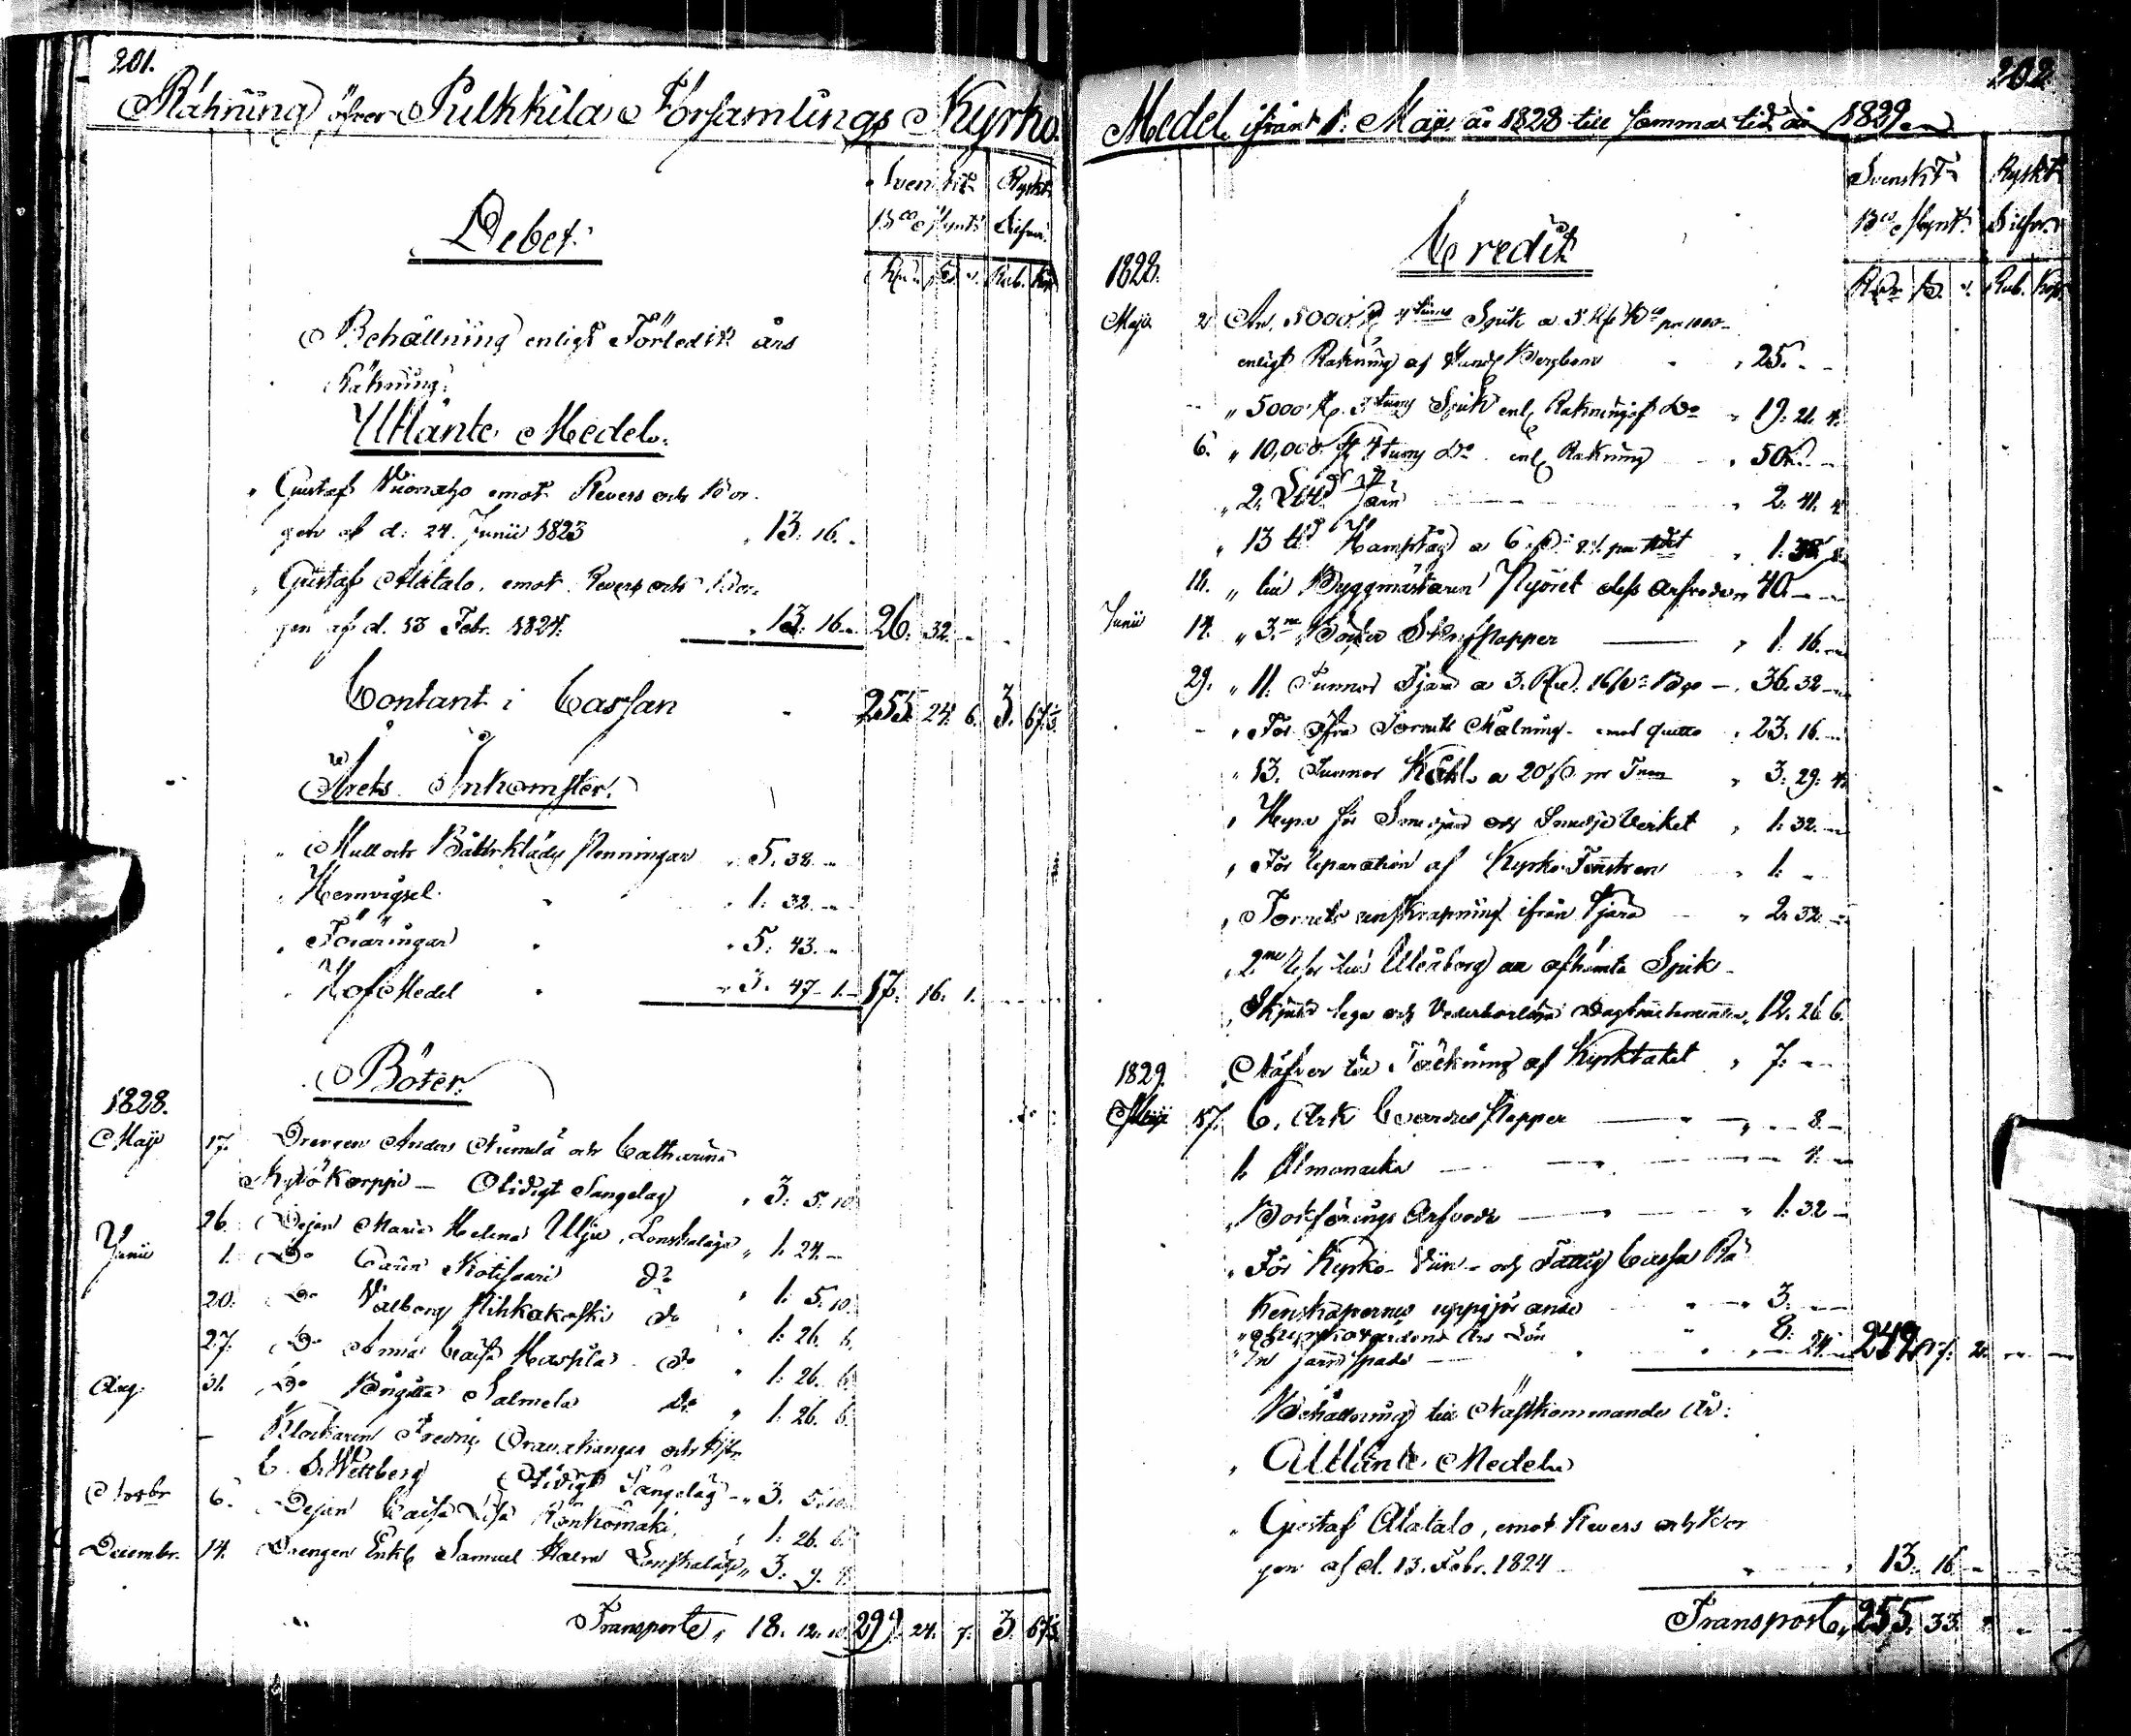 201.
Räkning öfver Pulkkila Församlings Kyrko
Svenskt Ryskt
Bco Mynt Silfver
Rd. s. r. Rub. Kop.
Debet.
Behållning enligt Förledit års
Räkning:
Utlånte Medel.
" Gustaf Vuonaho emot Revers och Bor
gen af d: 24. Junii 1823 " 13. 16. -
" Gustaf Alatalo, emot Revers och Bor
gen af d. 13 Febr. 1824. " 13. 16. - 26. 32. - -
Contant i Cassan - 255. 24. 6. 3. 67⅓
Årets Inkomster.
" Mull och Bårklädes Penningar " 5. 38. -
" Hemvigsel " 1. 32. -
" Föräringar " 5: 43. -
" Håf Medel " 3. 47. 1. 17. 16. 1. - -
Böter.
1828.
Maji 17. Drengen Anders Niemelä och Catharina
Kylökorppi - Otidigt Sängelag " 3: 5. 10.
26. Pejan Maria Helena Ulju, Lönskaläge " 1. 24. -
Junii 1. Do Carin Kotisaari do " 1: 5. 10.
20. Do Valborg Pihkakoski do " 1: 26. 6.
27. Do Anna Caisa Haapala do " 1: 26. 6.
Aug. 31. Do Brigitta Salmela do " 1: 26. 6.
- Klockaren Fredric
C. S. Wettberg Otidigt Sängelag - " 3. 5. 10.
Novbr 6. Pejan Caisa Lisa Könkömäki " 1: 26. 6.
Decembr. 14. Drengen Enkl Samuel Halm Lönskaläge " 3. 9. 7.
Transporte, 18. 12. 10. 299. 24. 7. 3. 67⅓
202.
Medel ifrån 1. Maji år 1828 till samma tid år 1829.
Svenskt Ryskt
Bco Mynt Silfver
Rd. s. r. Rub. Kop.
Credit
1828.
Maji 2. An 5000 st 4 tums Spik a 5 Rd Bco per 1000
enligt Räkning af Bergbom " 25. - -
- " 5000 st. 3 tums Spik enl. Räkning af Do " 19. 21. 4.
6. " 10,000 st 4 tums Do enl Räkning " 50. - -
" 2. Lttd Jarn " 2. 41. 4.
" 13 ttd Hamptåg a 6 s
11. " till Byggmästaren Nyöret dess arfvode " 40. - -
Junii 14. " 3ne Böcker Skrifpapper " 1. 16. -
29. " 11. Tunnor Tjära a 3. Rd. 16 s Bco - " 36. 32. -
- " För Tornets Målning emot quitto " 23. 16. -
" 13. Tunnor Kåhl a 20 s per Tun " 3. 29. 4.
" Hyra för Smedjan och Smedje Verket " 1. 32. -
" För reparation af Kyrko Fönstren " 1. -
" Tornets renskrapning ifrån Tjära " 2. 32. -
" 2ne till Uleåborg att afhämta Spik
" Skjuts lega och Vederbörliga Dagtractamenten " 12. 26. 6.
1829. " Näfver till Täckning af Kyrktaket " 7. - -
Maji 17. 6. Ark Cardus Papper - - 8. -
1. Almanacka - - 4. -
" Bokförings Arfvode " 1. 32 -
" För Kyrko- Viin- och Fattig Cassa Rä
kenskapernes uppgjörande " 3. - -
" Kyrkovärdens Års Lön " 8. -
" En Jarnspade " - 24. - 242. 17. 2. - -
Behållning till Nästkommande År:
" Utlånte Medel
" Gustaf Alatalo, emot Revers och Bor
gen af d. 13. Febr. 1824 " 13. 16. - - -
Transporte, 255. 33. 2. - -